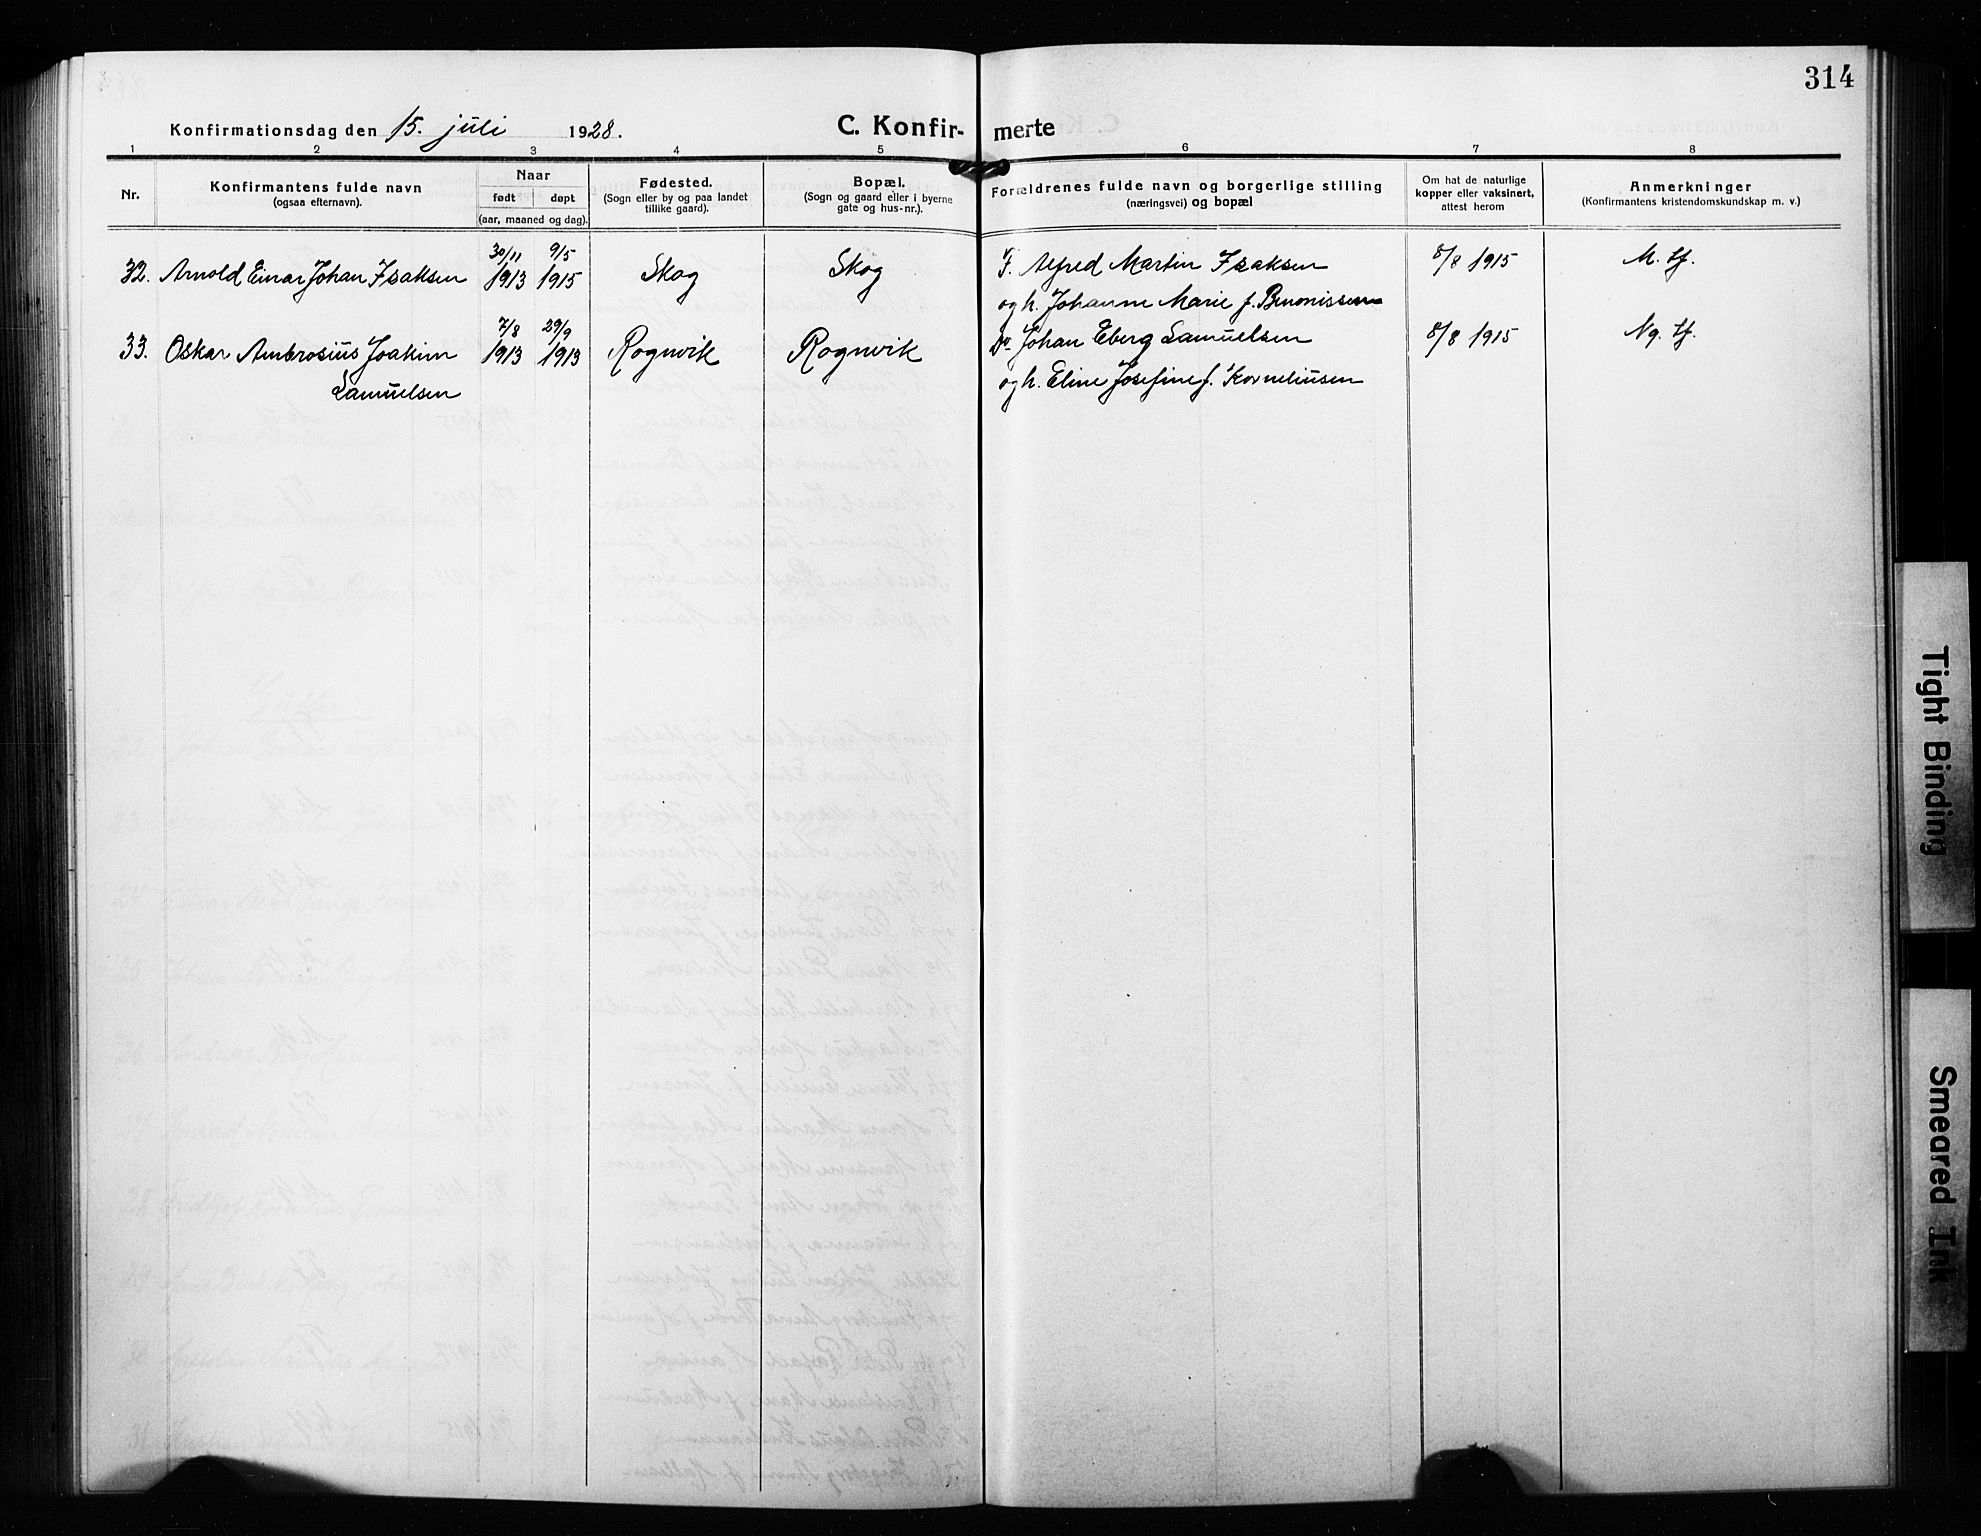 314
Konfirmationsdag den 15. juli 1928.
C. Konfir- merte
1 2 3 4 5 6 7 8
Nr.
Konfirmantens fulde navn
(ogsaa efternavn).
Naar
født døpt
(aar, maaned og dag).
Fødested.
(Sogn eller by og paa landet
tillike gaard).
Bopæl.
(Sogn og gaard eller i byerne
gate og hus-nr.).
Forældrenes fulde navn og borgerlige stilling
(næringsvei) og bopæl
Om hat de naturlige
kopper eller vaksinert,
attest herom
Anmerkninger
(Konfirmantens kristendomskundskap m. v.)
30/11 9/5
32. Arnold Einar Johan Isaksen 1913 1915 Skog Skog F. Alfred Martin Isaksen 8/8 1915 M. tf.
og h. Johanne Marie f. Benonissen
7/8 29/9
33. Oskar Ambrosius Joakim 1913 1913 Rognvik Rognvik Do Johan Eberg Samuelsen 8/8 1915 Ng. tf.
Samuelsen og h. Eline Josefine f. Korneliusen
Tight Binding
Smeared Ink